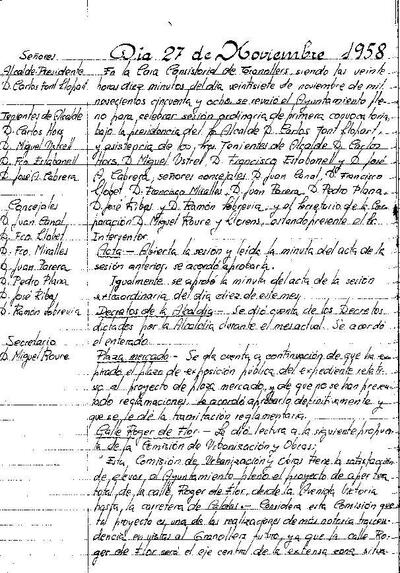 Dia 27 de Noviembre 1958
Señores
Alcalde-Presidente
D. Carlos Font Llopart
Tenientes de Alcalde
D. Carlos Hors
D. Miguel Ustrel
D. Fco. Estabanell
D. José A. Cabrera
Concejales
D. Juan Canal
D. Fco. Llobet
D. Fco. Miralles
D. Juan Parera
D. Pedro Plana
D. José Ribas
D. Ramón
Secretario
D. Miguel Roure
En la Casa Consistorial de Granollers, siendo las veinte
horas diez minutos del día veintisiete de noviembre de mil
novecientos cincuenta y ocho, se reunió el Ayuntamiento ple-
no para celebrar sesión ordinaria de primera convocatoria,
bajo la presidencia del Sr. Alcalde D. Carlos Font Llopart,
y asistencia de los Sres. Tenientes de Alcalde D. Carlos
Hors, D. Miguel Ustrel, D. Francisco Estabanell y D. José
A. Cabrera, señores concejales D. Juan Canal, D. Francisco
Llobet, D. Francisco Miralles, D. Juan Parera, D. Pedro Plana,
D. José Ribas y D. Ramón y el Secretario de la Cor-
poración D. Miguel Roure y Llorens, estando presente el Sr.
Interventor.
Acta - Abierta la sesión y leída la minuta del acta de la
sesión anterior, se acordó aprobarla.
Igualmente se aprobó la minuta del acta de la sesión
extraordinaria del día diez de este mes.
Decretos de la Alcaldía - Se dió cuenta de los Decretos
dictados por la Alcaldía durante el mes actual. Se acordó
el enterado.
Plaza mercado - Se da cuenta a continuación de que ha ex-
pirado el plazo de exposición pública del expediente relati-
vo al proyecto de plaza mercado, y de que no se han presen-
tado reclamaciones. Se acordó aprobarlo definitivamente y
que se le dé la tramitación reglamentaria.
Calle Roger de Flor - Se dió lectura a la siguiente propues-
ta de la Comisión de Urbanización y Obras:
"Esta Comisión de Urbanización y Obras tiene la satisfacción
de elevar al Ayuntamiento pleno el proyecto de apertura
total de la calle Roger de Flor, desde la Avenida Victoria
hasta la carretera de Caldas - Considera esta Comisión que
tal proyecto es una de las realizaciones de más notoria trascen-
dencia en vistas al Granollers futuro, ya que la calle Ro-
ger de Flor será el eje central de la extensa zona situa-